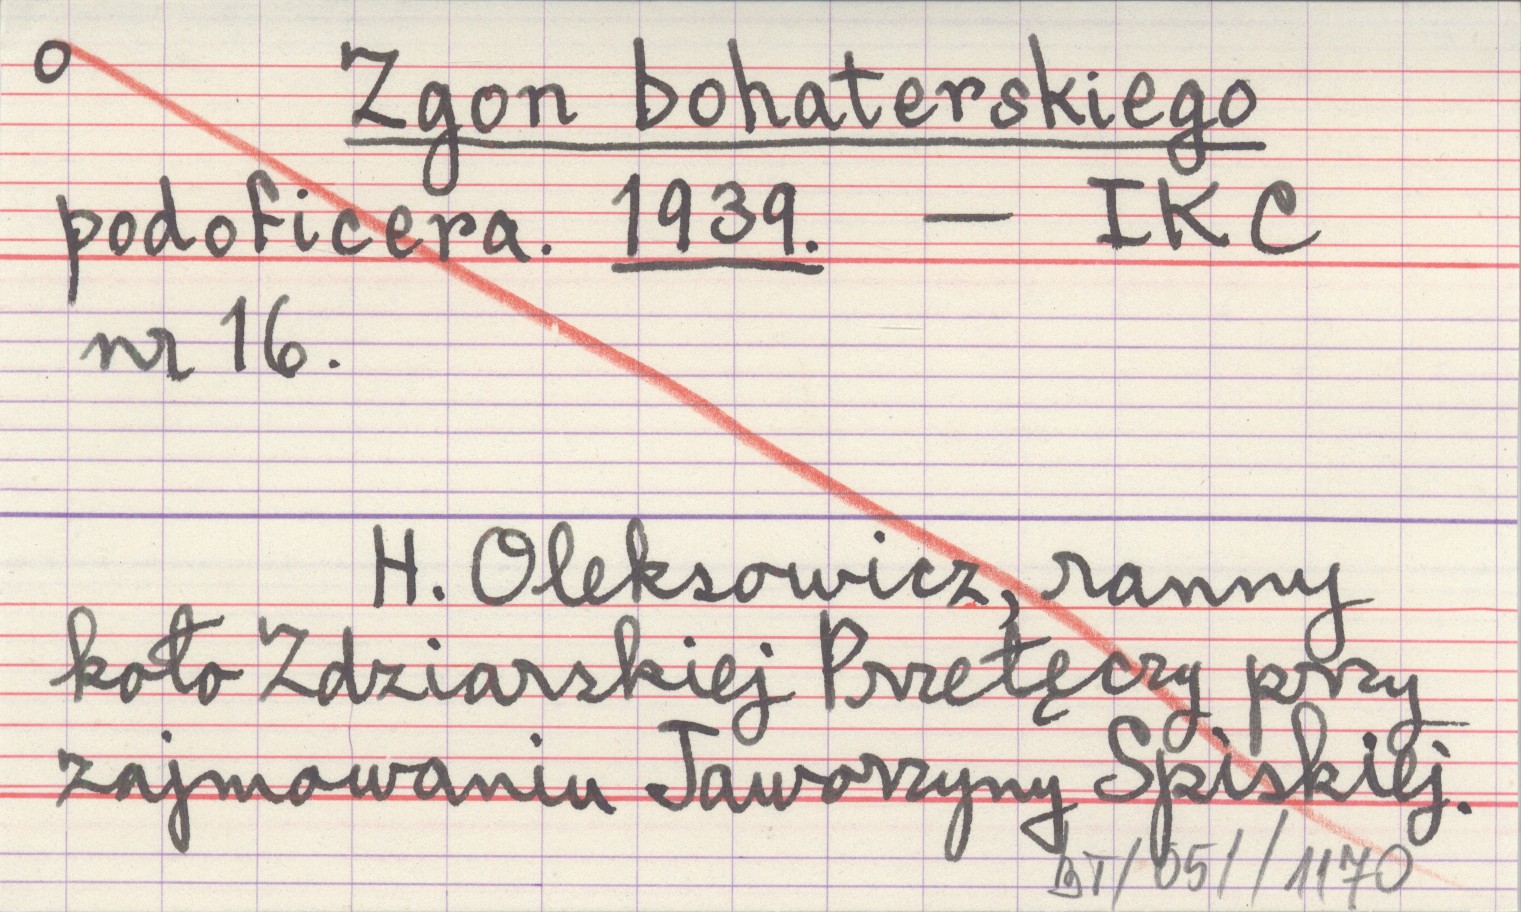 o Zgon bohaterskiego
podoficera. 1939. — IKC
nr 16.
H. Oleksowicz, ranny
koło Zdziarskiej Przełęczy przy
zajmowaniu Jaworzyny Spiskiej.
BT/05//1170